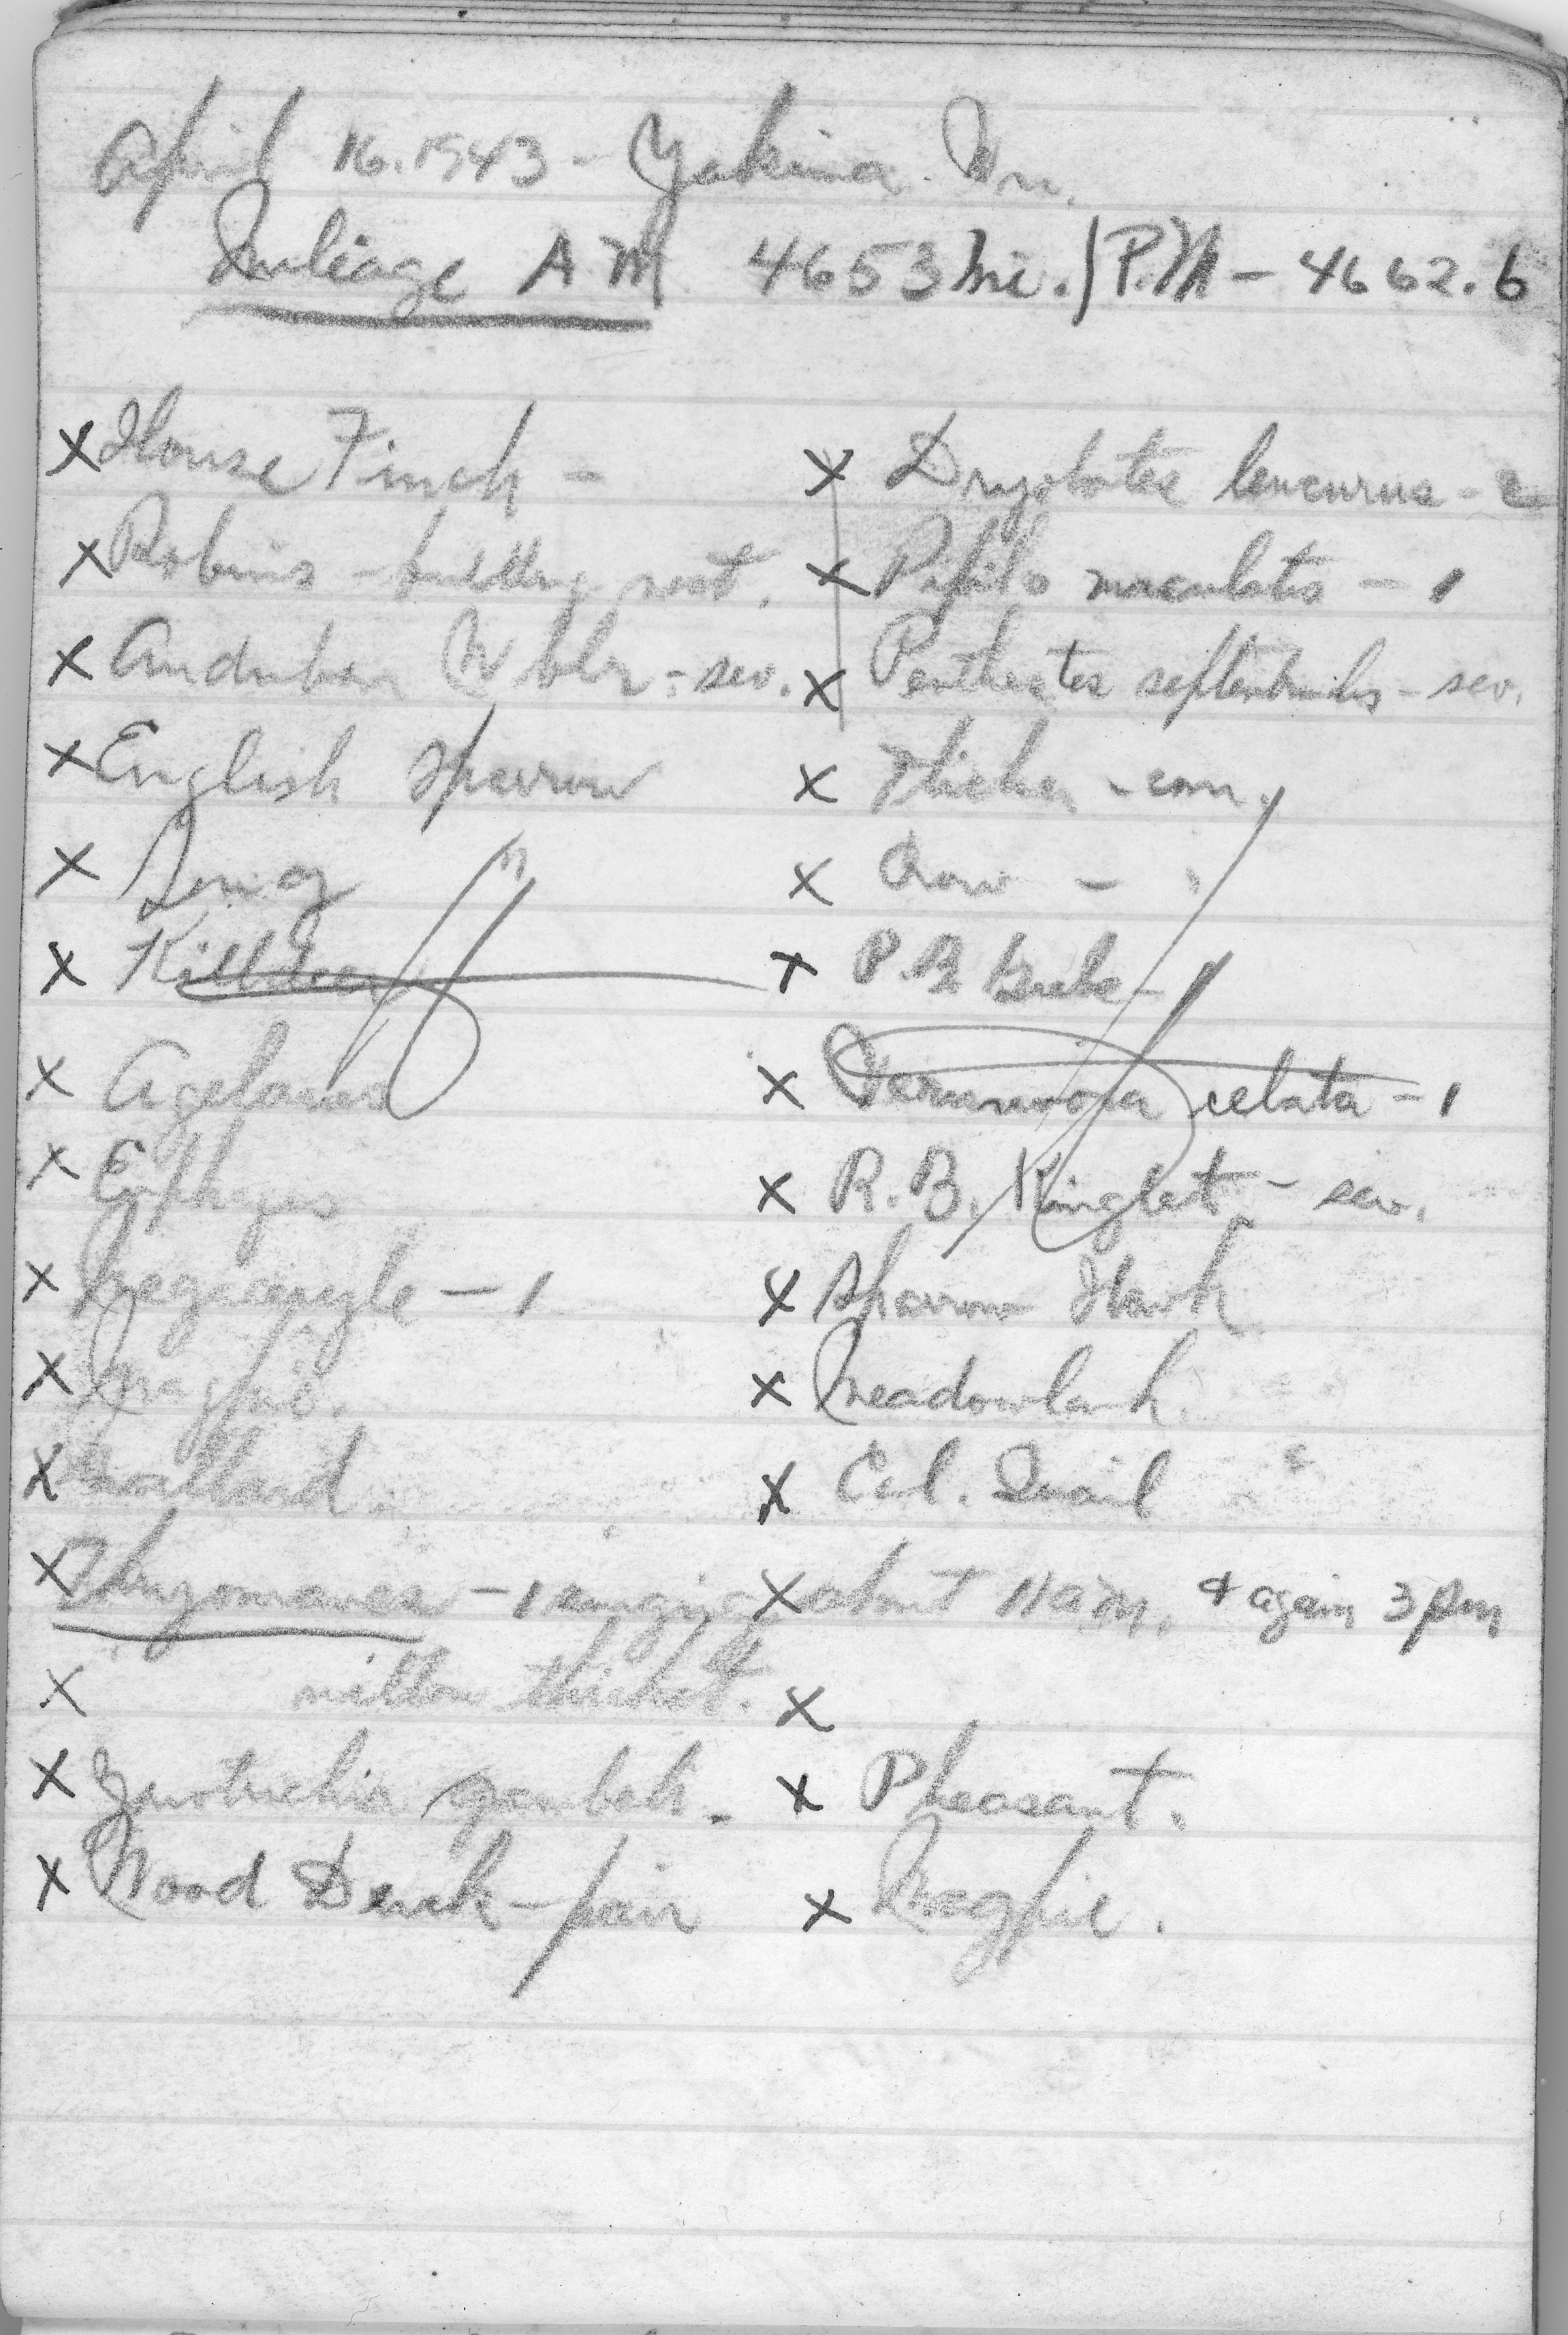 April 16. 1943 - Yakima. Wn.
Mileage A M 4653 mi. / P.M - 4662.6
X House Finch -
X Robins - building nest.
X Audubon Wblr - sev.
X English Sparrow
X Song "
X Killdeer
X Agelaius
X Euphagus
X Megaceryle - 1
X Magpie.
X Mallard.
X Thryomanes - 1 singing X about 11 am. & again 3 pm
X willow thicket. X
X Zonotrichia gambeli -
X Wood Duck - pair
X Dryobates leucurus - 2
X Pipilo maculatus - 1
X Penthestes septentrionalis - sev.
X Flicker - com.
X Crow -
X P. B. Grebe - 1
X Vermivora celata - 1
X R. B. Kinglet - sev.
X Sparrow Hawk
X Meadowlark.
X Cal. Quail
X Pheasant.
X Magpie.